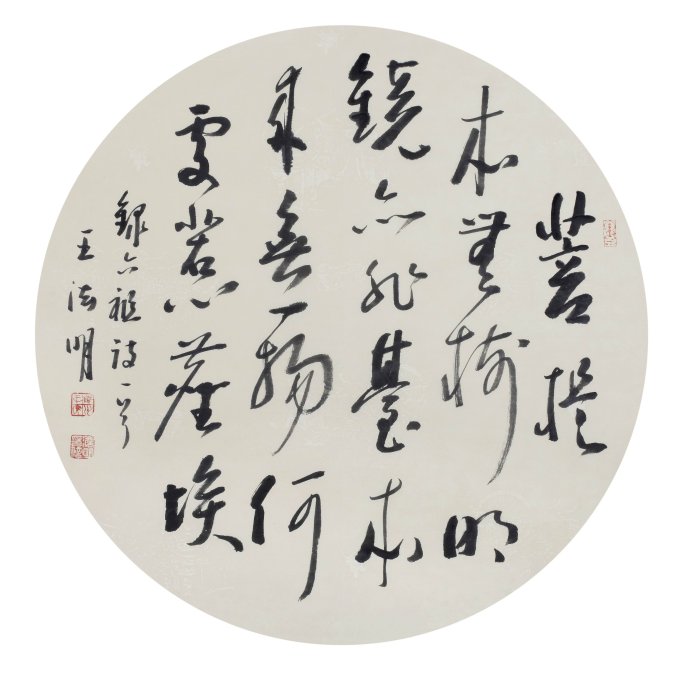 菩提
本無樹明
鏡亦非臺本
來無一物何
處惹塵埃
錄六祖詩一首
王法明